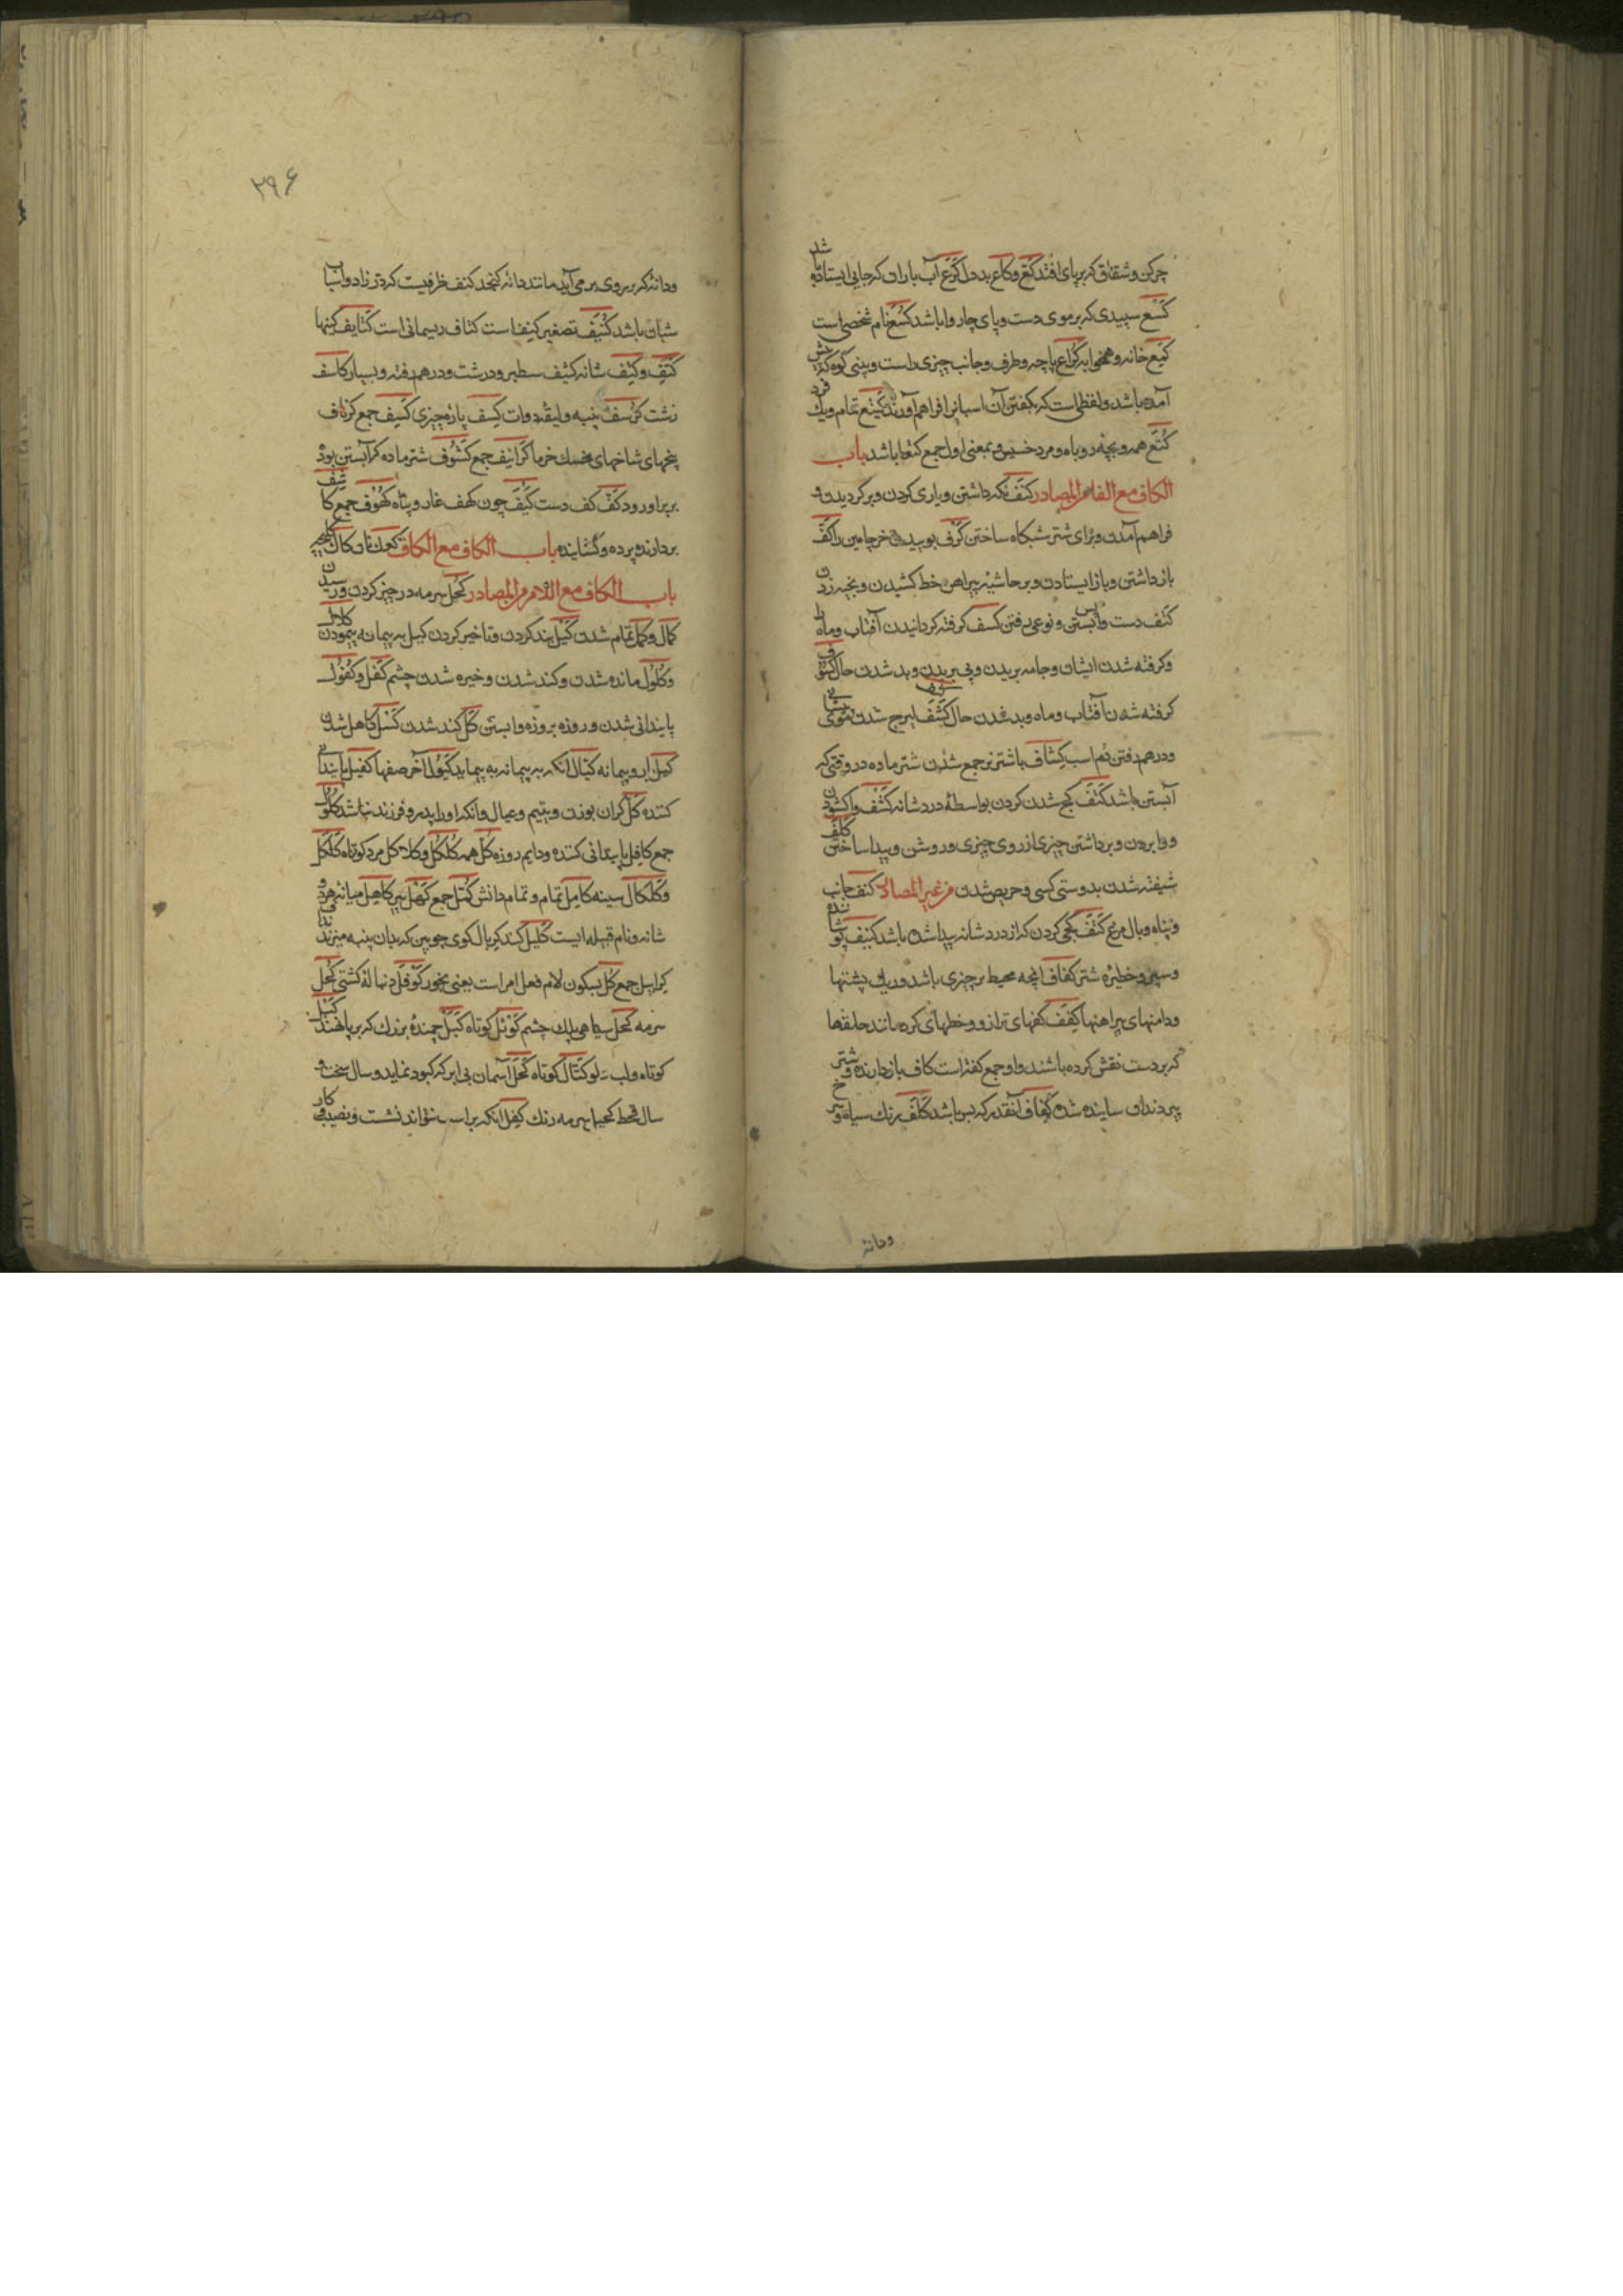 چرکن و شقاق که بر پای افتد کَقع و کاع بددل کَرَع آب باران که جایی ایستاده شد
کَسَع سپیدی که بر موی دست و پای چاروا باشد کُسَع نام شخصی است
کِمع خانه و همخوابه کُراع پاچه و طرف و جانب چیزی راست و بینی کوه که پیش
آمده باشد و لفظی است که بگفتن آن اسبانرا فراهم آورند کَتیع تمام و یک فرد
کُتَع همه و بچه روباه و مرد خسیس و بمعنی اول جمع کتعا باشد باب
الکاف مع الفاء من المصادر کَنَف نگه داشتن و یاری کردن و برگردیدن و
فراهم آمدن و برای شتر شبگاه ساختن کَرف بوییدن خر چامین را کَفّ
باز داشتن و باز ایستادن و بر حاشیه پیراهن خط کشیدن و بخیه زدن
کتف دست واپس بستن و نوعی رفتن کسف گرفته گردانیدن آفتاب و ماه را
و گرفته شدن ایشان و جامه بریدن و پی بریدن و بد شدن حال کسوف
گرفته شدن آفتاب و ماه و بد شدن حال کَشَف برج شدن موی پیشانی
و درهم رفتن دم اسب کِشاف با شتر نر جمع شدن شتر ماده در وقتی که
آبستن باشد کَتَف کج شدن کردن بواسطهٔ درد شانه کَشف واگشودن
و وا بردن و برداشتن چیزی از روی چیزی و روشن و پیدا ساختن کَلَف
شیفته شدن بدوستی کسی و حریص شدن من غیر المصادر کنف جانب
و پناه و بال مرغ کَتَف کجی کردن که از درد شانه پیدا شده باشد کنیف پوشانده
و سپر و خطیره شتر کِفاف آنچه محیط بر چیزی باشد و ریک پشتها
و دامنهای پیراهنها کِفَف کفهای ترازو و خطهای گرد مانند حلقها
که بر دست نقش کرده باشند و او جمع کفه است کاف باز دارنده و شتر
پیر دندان ساییده شده کَفاف آنقدر که بس باشد کَلَف رنک سیاه و سرخ
و دانه
۲۹۶
و دانهٔ که بر روی بر می‌آید مانند دانه کنجد کنف ظرفیست که در زاد و اسباب
شبان باشد کُنَیف تصغیر کنف است کتاف ریسمانی است کَتایف کینها
کَتِف و کِتف شانه کثیف سطبر و درشت و درهم رفته و بسیار کاسف
زشت کُرسُف پنبه و لیقه دوات کِسف پاره چیزی کِسَف جمع کرناف
بیخهای شاخهای خشک خرما کَرانیف جمع کَشوف شتر ماده که آبستن بود و
بر برآورد کفّ کف دست کَیفَ چون کهف غار و پناه کُهوف جمع کاشف
بردارنده پرده و گشاینده باب الکاف مع الکاف کعک نان کاک
باب الکاف مع اللام من المصادر کَحل سرمه در چیز کردن و رسیدن
کمال و کمل تمام شدن کَبل بند کردن و تاخیر کردن کیل به پیمانه پیمودن کلال
و کُلول مانده شدن و کند شدن و خیره شدن چشم کَفل و کُفول
پایندانی شدن و روزه بروزه وا بستن کَلّ کند شدن کَسَل کاهل شدن
کیل و پیمانه کیّال آنکه به پیمانه به پیماید کَیّول آخر صفها کفیل پایندانی
کننده کَلّ گران بودن و یتیم و عیال و آنکه او را پدر و فرزند نباشد کُلول
جمع کافِل پایندانی کننده و دایم روزه کُلّ همه کُلکُل و کلاکل مرد کوتاه کَلکَل
و کلکال سینه کامِل تمام و تمام دانش کُمَّل جمع کَهل پیر کاهِل میانه هر دو
شانه و نام قبیله ایست کَلیل کند کِربال کوی چوبین که بدان پنبه میزنند
کِرابیل جمع کُل بسکون لام فعل امر است یعنی بخور کَوثَل دنباله کشتی کُحل
سرمه کَحَل سیاهی پلک چشم کَوتَل کوتاه کَبل جمندهٔ بزرک که بر پا نهند
کوتاه و لب دلو کُتال کوتاه کَحل آسمان بی ابر که کبود نماید و سال سخت و
سال قحط کحیل سرمه رنک کِفل آنکه بر اسب نتواند نشست و نصیب و کار